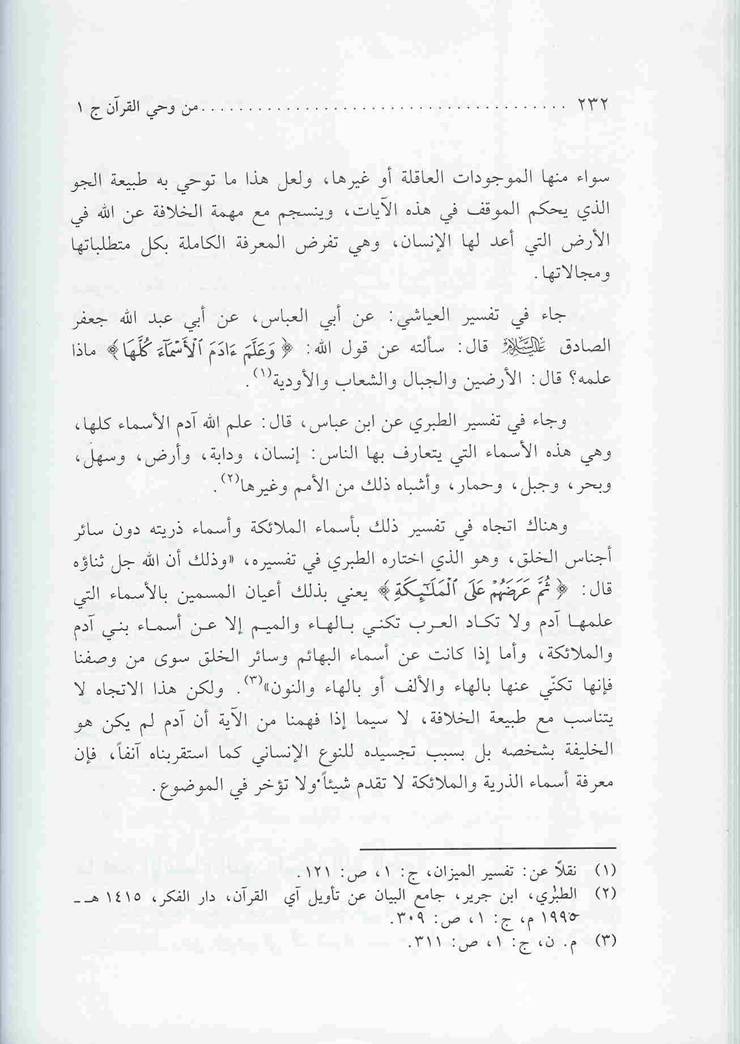 ٢٣٢ ........................................ من وحي القرآن ج ١
سواء منها الموجودات العاقلة أو غيرها، ولعل هذا ما توحي به طبيعة الجو
الذي يحكم الموقف في هذه الآيات، وينسجم مع مهمة الخلافة عن الله في
الأرض التي أعد لها الإنسان، وهي تفرض المعرفة الكاملة بكل متطلباتها
ومجالاتها.
جاء في تفسير العياشي: عن أبي العباس، عن أبي عبد الله جعفر
الصادق عليه السلام قال: سألته عن قول الله: ﴿وَعَلَّمَ ءَادَمَ ٱلْأَسْمَآءَ كُلَّهَا﴾ ماذا
علمه؟ قال: الأرضين والجبال والشعاب والأودية(١).
وجاء في تفسير الطبري عن ابن عباس، قال: علم الله آدم الأسماء كلها،
وهي هذه الأسماء التي يتعارف بها الناس: إنسان، ودابة، وأرض، وسهل،
وبحر، وجبل، وحمار، وأشباه ذلك من الأمم وغيرها(٢).
وهناك اتجاه في تفسير ذلك بأسماء الملائكة وأسماء ذريته دون سائر
أجناس الخلق، وهو الذي اختاره الطبري في تفسيره، «وذلك أن الله جل ثناؤه
قال: ﴿ثُمَّ عَرَضَهُمْ عَلَى ٱلْمَلَٰٓئِكَةِ﴾ يعني بذلك أعيان المسمين بالأسماء التي
علمها آدم ولا تكاد العرب تكني بالهاء والميم إلا عن أسماء بني آدم
والملائكة، وأما إذا كانت عن أسماء البهائم وسائر الخلق سوى من وصفنا
فإنها تكنّي عنها بالهاء والألف أو بالهاء والنون»(٣). ولكن هذا الاتجاه لا
يتناسب مع طبيعة الخلافة، لا سيما إذا فهمنا من الآية أن آدم لم يكن هو
الخليفة بشخصه بل بسبب تجسيده للنوع الإنساني كما استقربناه آنفاً، فإن
معرفة أسماء الذرية والملائكة لا تقدم شيئاً ولا تؤخر في الموضوع.
(١) نقلاً عن: تفسير الميزان، ج: ١، ص: ١٢١.
(٢) الطبري، ابن جرير، جامع البيان عن تأويل آي القرآن، دار الفكر، ١٤١٥ هـ ـ
١٩٩٥ م، ج: ١، ص: ٣٠٩.
(٣) م. ن، ج: ١، ص: ٣١١.